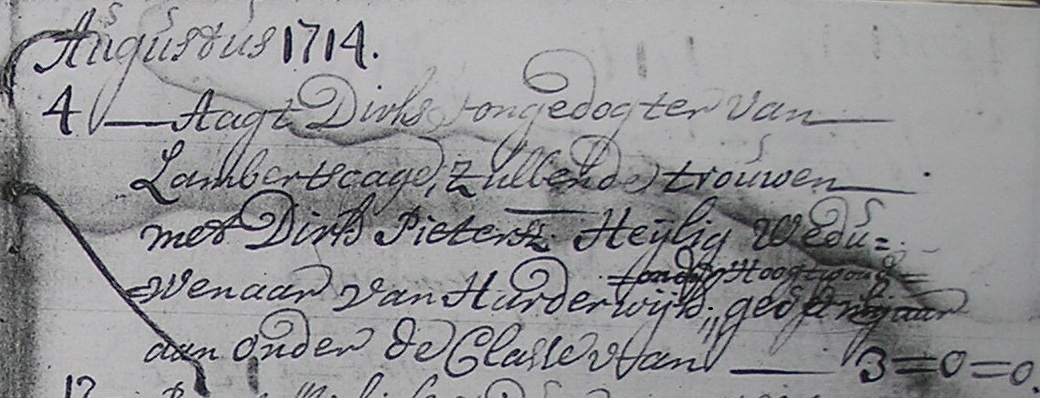 Augustus 1714.
4 — Aagt Dirks Jongedogter van —
Lambertscage, Zullende trouwen —
met Dirk Pietersz. Heÿlig Wedu=
wenaar van Harderwijk,
aan onder de Classe van — 3=0=0.